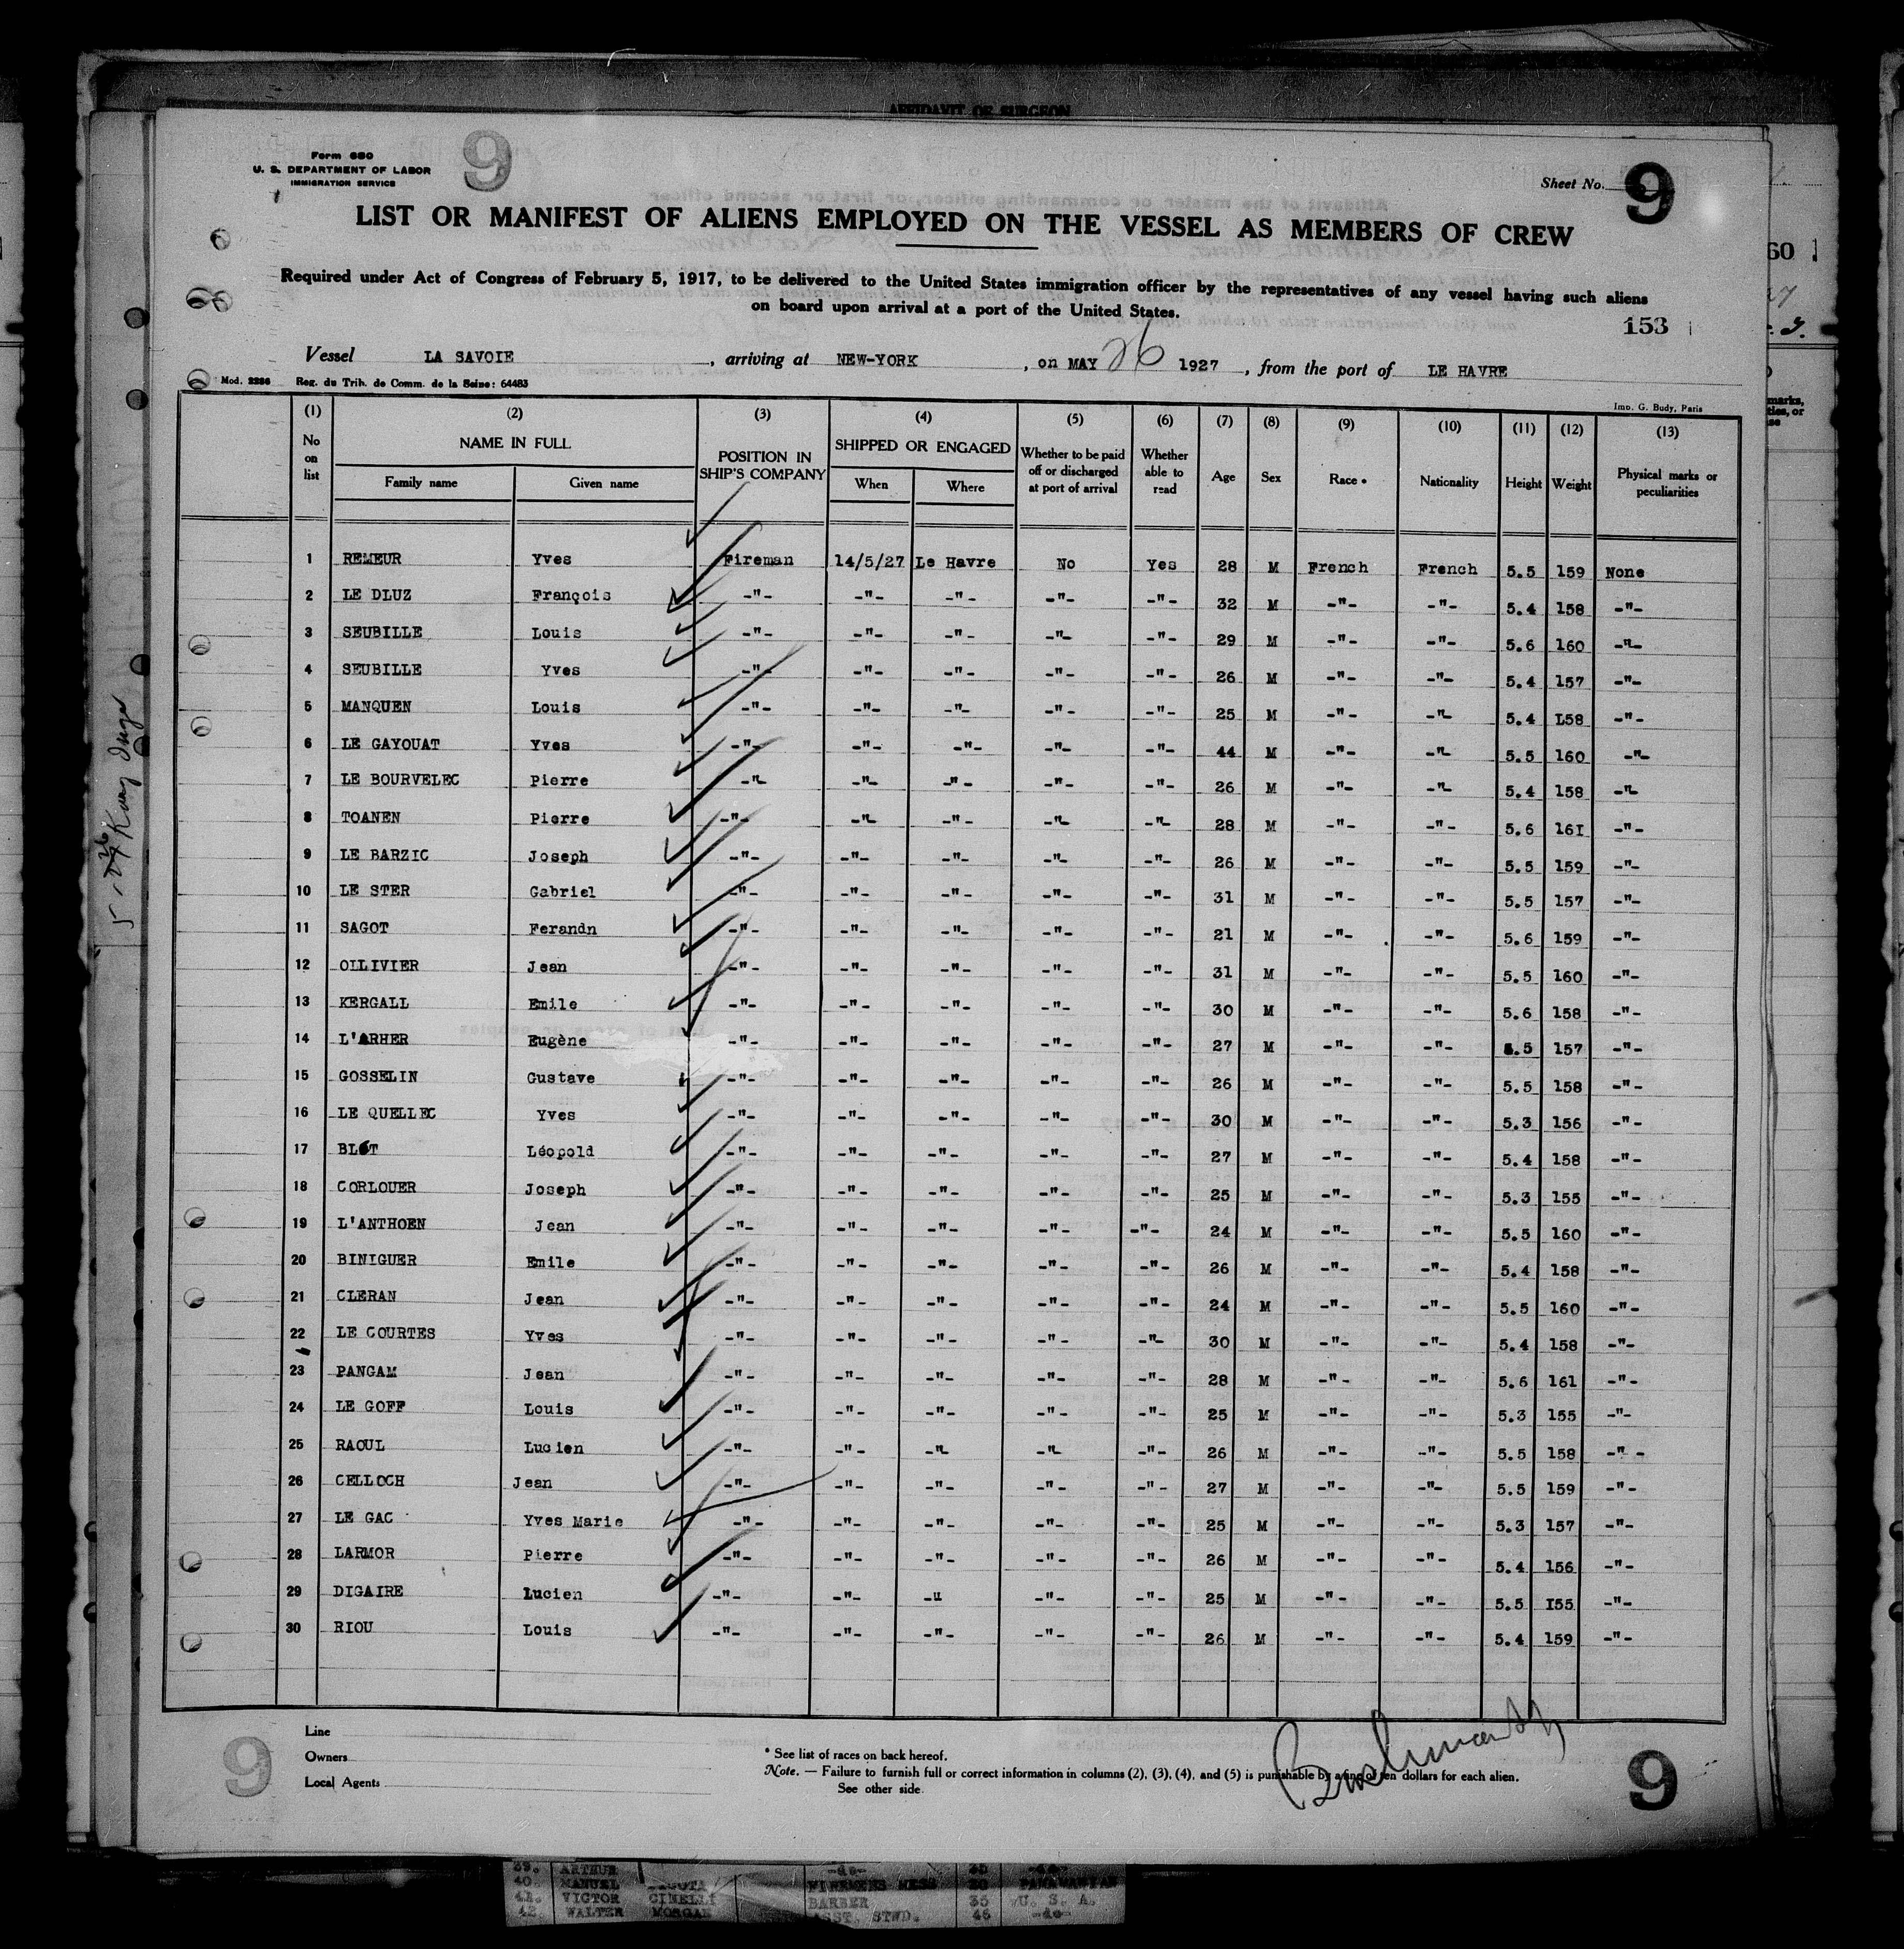 AFFIDAVIT OF SURGEON
Form 680
U. S. DEPARTMENT OF LABOR
IMMIGRATION SERVICE
9
Sheet No. 9
LIST OR MANIFEST OF ALIENS EMPLOYED ON THE VESSEL AS MEMBERS OF CREW
Required under Act of Congress of February 5, 1917, to be delivered to the United States immigration officer by the representatives of any vessel having such aliens
on board upon arrival at a port of the United States.
153
Vessel LA SAVOIE, arriving at NEW-YORK, on MAY 26 1927, from the port of LE HAVRE
Mod. 2286 Reg. du Trib. de Comm. de la Seine: 64483
Imp. G. Budy, Paris
(1) (2) (3) (4) (5) (6) (7) (8) (9) (10) (11) (12) (13)
No on list NAME IN FULL Family name Given name POSITION IN SHIP'S COMPANY SHIPPED OR ENGAGED When Where Whether to be paid off or discharged at port of arrival Whether able to read Age Sex Race * Nationality Height Weight Physical marks or peculiarities
1 REMEUR Yves Fireman 14/5/27 Le Havre No Yes 28 M French French 5.5 159 None
2 LE DLUZ François -"- -"- -"- -"- -"- 32 M -"- -"- 5.4 158 -"-
3 SEUBILLE Louis -"- -"- -"- -"- -"- 29 M -"- -"- 5.6 160 -"-
4 SEUBILLE Yves -"- -"- -"- -"- -"- 26 M -"- -"- 5.4 157 -"-
5 MANQUEN Louis -"- -"- -"- -"- -"- 25 M -"- -"- 5.4 I58 -"-
6 LE GAYOUAT Yves -"- -"- -"- -"- -"- 44 M -"- -"- 5.5 160 -"-
7 LE BOURVELEC Pierre -"- -"- -"- -"- -"- 26 M -"- -"- 5.4 158 -"-
8 TOANEN Pierre -"- -"- -"- -"- -"- 28 M -"- -"- 5.6 16I -"-
9 LE BARZIC Joseph -"- -"- -"- -"- -"- 26 M -"- -"- 5.5 159 -"-
10 LE STER Gabriel -"- -"- -"- -"- -"- 31 M -"- -"- 5.5 157 -"-
11 SAGOT Ferandn -"- -"- -"- -"- -"- 21 M -"- -"- 5.6 159 -"-
12 OLLIVIER Jean -"- -"- -"- -"- -"- 31 M -"- -"- 5.5 160 -"-
13 KERGALL Emile -"- -"- -"- -"- -"- 30 M -"- -"- 5.6 158 -"-
14 L'ARHER Eugène -"- -"- -"- -"- -"- 27 M -"- -"- 5.5 157 -"-
15 GOSSELIN Gustave -"- -"- -"- -"- -"- 26 M -"- -"- 5.5 158 -"-
16 LE QUELLEC Yves -"- -"- -"- -"- -"- 30 M -"- -"- 5.3 156 -"-
17 BLOT Léopold -"- -"- -"- -"- -"- 27 M -"- -"- 5.4 158 -"-
18 CORLOUER Joseph -"- -"- -"- -"- -"- 25 M -"- -"- 5.3 155 -"-
19 L'ANTHOEN Jean -"- -"- -"- -"- -"- 24 M -"- -"- 5.5 160 -"-
20 BINIGUER Emile -"- -"- -"- -"- -"- 26 M -"- -"- 5.4 158 -"-
21 CLERAN Jean -"- -"- -"- -"- -"- 24 M -"- -"- 5.5 160 -"-
22 LE COURTES Yves -"- -"- -"- -"- -"- 30 M -"- -"- 5.4 158 -"-
23 PANGAM Jean -"- -"- -"- -"- -"- 28 M -"- -"- 5.6 161 -"-
24 LE GOFF Louis -"- -"- -"- -"- -"- 25 M -"- -"- 5.3 155 -"-
25 RAOUL Lucien -"- -"- -"- -"- -"- 26 M -"- -"- 5.5 158 -"-
26 CELLOCH Jean -"- -"- -"- -"- -"- 27 M -"- -"- 5.5 159 -"-
27 LE GAC Yves Marie -"- -"- -"- -"- -"- 25 M -"- -"- 5.3 157 -"-
28 LARMOR Pierre -"- -"- -"- -"- -"- 26 M -"- -"- 5.4 156 -"-
29 DIGAIRE Lucien -"- -"- -" -"- -"- 25 M -"- -"- 5.5 I55 -"-
30 RIOU Louis -"- -"- -"- -"- -"- 26 M -"- -"- 5.4 159 -"-
Line
Owners
Local Agents
* See list of races on back hereof.
Note. — Failure to furnish full or correct information in columns (2), (3), (4), and (5) is punishable by a fine of ten dollars for each alien.
See other side.
9
9
39. ARTHUR -do-
40. MANUEL 
41. VICTOR CINELLI BARBER 35 U. S. A.
42. WALTER MORGAN ASST. STWD. 46 -do-